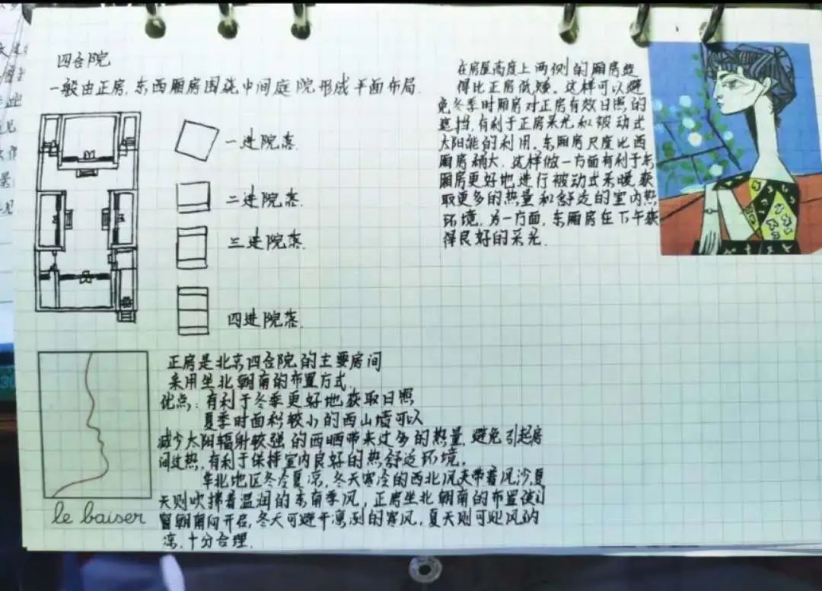 四合院
一般由正房,东西厢房围绕中间庭院形成平面布局.
一进院落
二进院落.
三进院落
四进院落.
在房屋高度上两侧的厢房
得比正房低矮. 这样可以避
免冬季时厢房对正房有效日照的
遮挡.有利于正房采光和被动式
太阳能的利用. 东厢房尺度比西
厢房稍大. 这样做一方面有利于东
厢房更好地进行被动式采暖.获
取更多的热量和舒适的室内热
环境. 另一方面,东厢房在下午获
得良好的采光.
正房是北京四合院的主要房间
采用坐北朝南的布置方式.
优点: 有利于冬季更好地获取日照
夏季时面积较小的西山墙可以
减少太阳辐射较强的西晒带来过多的热量.避免引起房
间过热.有利于保持室内良好的热舒适环境.
华北地区冬冷夏凉,冬天寒冷的西北风夹带着风沙.夏
天则吹拂着温润的东南季风, 正房坐北朝南的布置使门
窗朝南向开启,冬天可避开凛冽的寒风,夏天则可迎风纳
凉,十分合理.
le baiser